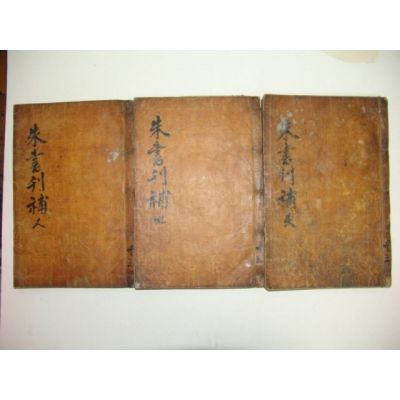 朱書刊補 天
朱書刊補 地
朱書刊補 人